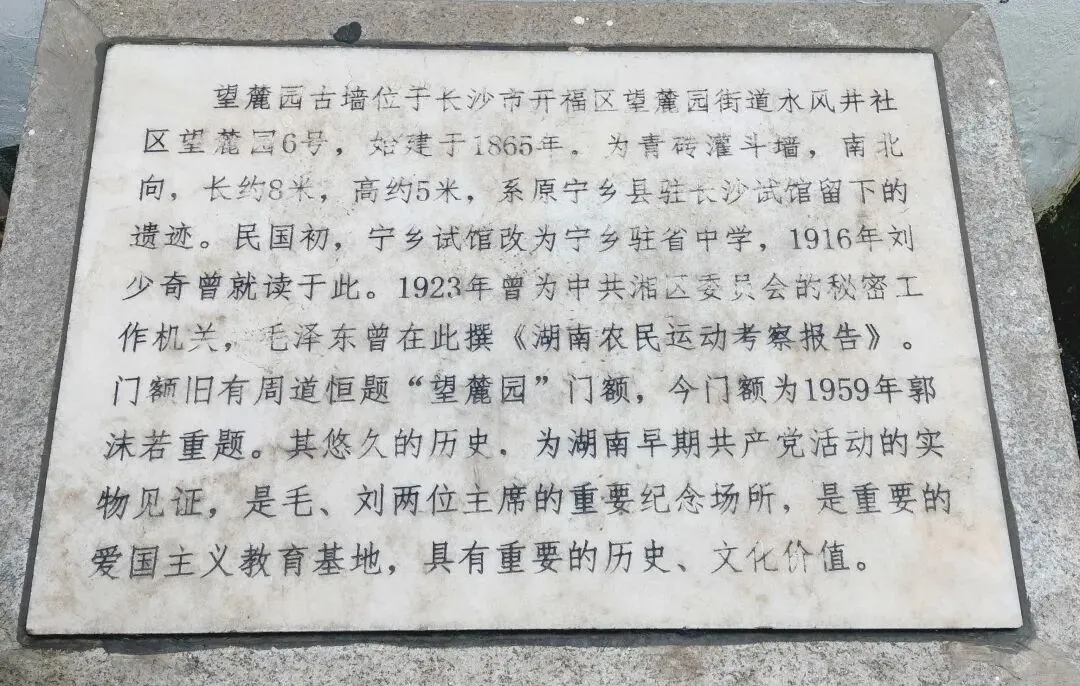 望麓园古墙位于长沙市开福区望麓园街道水风井社
区望麓园6号，始建于1865年。为青砖灌斗墙，南北
向，长约8米，高约5米，系原宁乡县驻长沙试馆留下的
遗迹。民国初，宁乡试馆改为宁乡驻省中学，1916年刘
少奇曾就读于此。1923年曾为中共湘区委员会的秘密工
作机关，毛泽东曾在此撰《湖南农民运动考察报告》。
门额旧有周道恒题“望麓园”门额，今门额为1959年郭
沫若重题。其悠久的历史，为湖南早期共产党活动的实
物见证，是毛、刘两位主席的重要纪念场所，是重要的
爱国主义教育基地，具有重要的历史、文化价值。